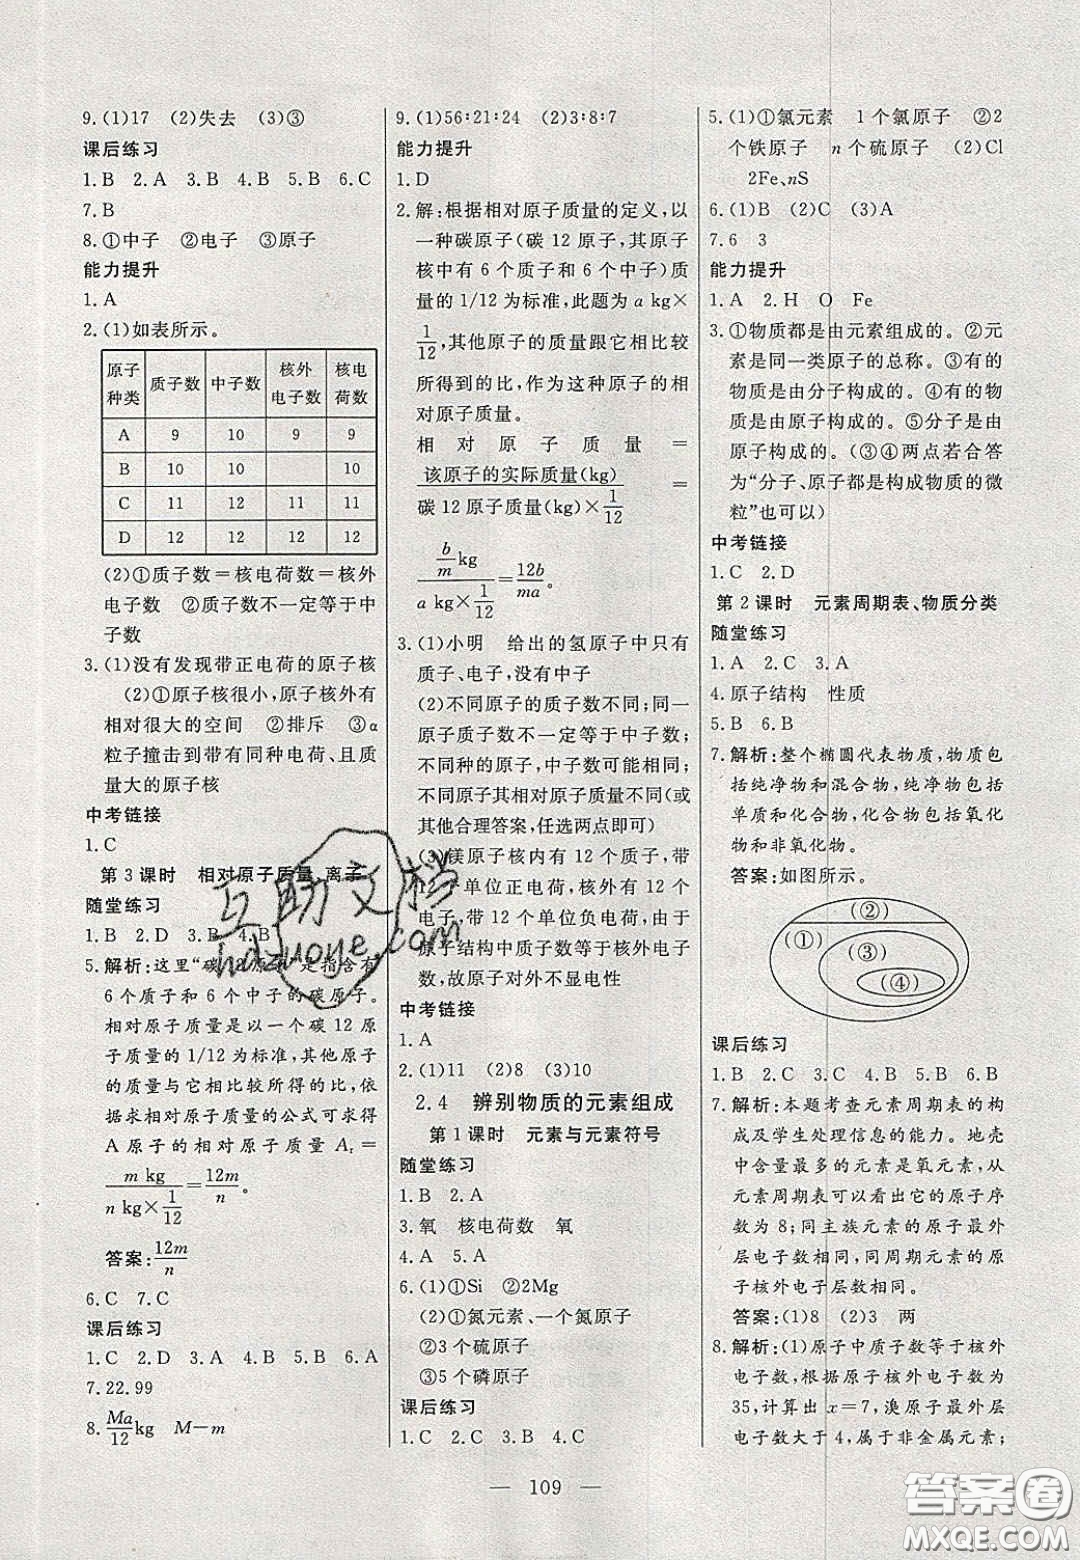 9.(1)17 (2)失去 (3)③
课后练习
1.B 2.A 3.B 4.B 5.B 6.C
7.B
8.①中子 ②电子 ③原子
能力提升
1.A
2.(1)如表所示。
原子种类 质子数 中子数 核外电子数 核电荷数
A 9 10 9 9
B 10 10 10
C 11 12 11 11
D 12 12 12 12
(2)①质子数=核电荷数=核外
电子数 ②质子数不一定等于中
子数
3.(1)没有发现带正电荷的原子核
(2)①原子核很小,原子核外有
相对很大的空间 ②排斥 ③α
粒子撞击到带有同种电荷、且质
量大的原子核
中考链接
1.C
第3课时 相对原子质量 离子
随堂练习
1.B 2.D 3.B 4.B
5.解析:这里“碳12原子”是指含有
6个质子和6个中子的碳原子。
相对原子质量是以一个碳12原
子质量的1/12为标准,其他原子
的质量与它相比较所得的比。依
据求相对原子质量的公式可求得
A原子的相对原子质量 Ar =
m kg / (n kg×1/12) = 12m/n。
答案:12m/n
6.C 7.C
课后练习
1.C 2.D 3.D 4.B 5.B 6.A
7.22.99
8.Ma/12 kg M-m
9.(1)56:21:24 (2)3:8:7
能力提升
1.D
2.解:根据相对原子质量的定义,以
一种碳原子(碳12原子,其原子
核中有6个质子和6个中子)质
量的1/12为标准,此题为a kg×
1/12,其他原子的质量跟它相比较
所得到的比,作为这种原子的相
对原子质量。
相对原子质量=
该原子的实际质量(kg) / (碳12原子质量(kg)×1/12) =
(b/m kg) / (a kg×1/12) = 12b/ma。
3.(1)小明 给出的氢原子中只有
质子、电子,没有中子
(2)不同原子的质子数不同;同一
原子质子数不一定等于中子数;
不同种的原子中子数可能相同;
不同种原子相对原子质量不同(或
其他合理答案,任选两点即可)
(3)镁原子核内有12个质子,带
12个单位正电荷,核外有12个
电子,带12个单位负电荷,由于
原子结构中质子数等于核外电子
数,故原子对外不显电性
中考链接
1.A
2.(1)11 (2)8 (3)10
2.4 辨别物质的元素组成
第1课时 元素与元素符号
随堂练习
1.B 2.A
3.氧 核电荷数 氧
4.A 5.A
6.(1)①Si ②2Mg
(2)①氮元素、一个氮原子
②3个硫原子
③5个磷原子
课后练习
1.C 2.C 3.B 4.C
5.(1)①氯元素 1个氯原子 ②2
个铁原子 n个硫原子 (2)Cl
2Fe、nS
6.(1)B (2)C (3)A
7.6 3
能力提升
1.A 2.H O Fe
3.①物质都是由元素组成的。②元
素是同一类原子的总称。③有的
物质是由分子构成的。④有的物
质是由原子构成的。⑤分子是由
原子构成的。(③④两点若合答
为“分子、原子都是构成物质的微
粒”也可以)
中考链接
1.C 2.D
第2课时 元素周期表、物质分类
随堂练习
1.A 2.C 3.A
4.原子结构 性质
5.B 6.B
7.解析:整个椭圆代表物质,物质包
括纯净物和混合物,纯净物包括
单质和化合物,化合物包括氧化
物和非氧化物。
答案:如图所示。
(②)
(①)
(③)
(④)
课后练习
1.B 2.C 3.D 4.C 5.B 6.B
7.解析:本题考查元素周期表的构
成及学生处理信息的能力。地壳
中含量最多的元素是氧元素,从
元素周期表可以看出它的原子序
数为8;同主族元素的原子最外
层电子数相同,同周期元素的原
子核外电子层数相同。
答案:(1)8 (2)3 两
8.解析:(1)原子中质子数等于核外
电子数,根据原子核外电子数为
35,计算出x=7,溴原子最外层
电子数大于4,属于非金属元素;
109
互助文档
hdzuoye.com
答案圈
MXQE.COM